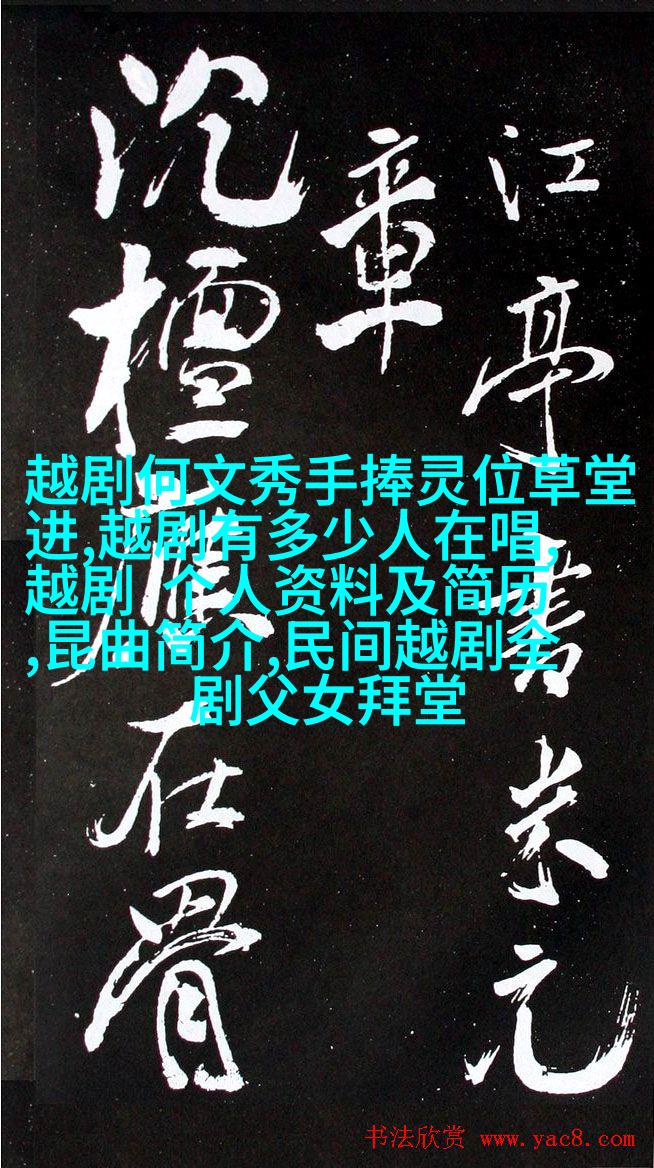 江亭書米元
章
沉檀在骨
越剧何文秀手捧灵位草堂
进,越剧有多少人在唱,
越剧 个人资料及简历
,昆曲简介,民间越剧全
剧父女拜堂
书法欣赏 www.yac8.com